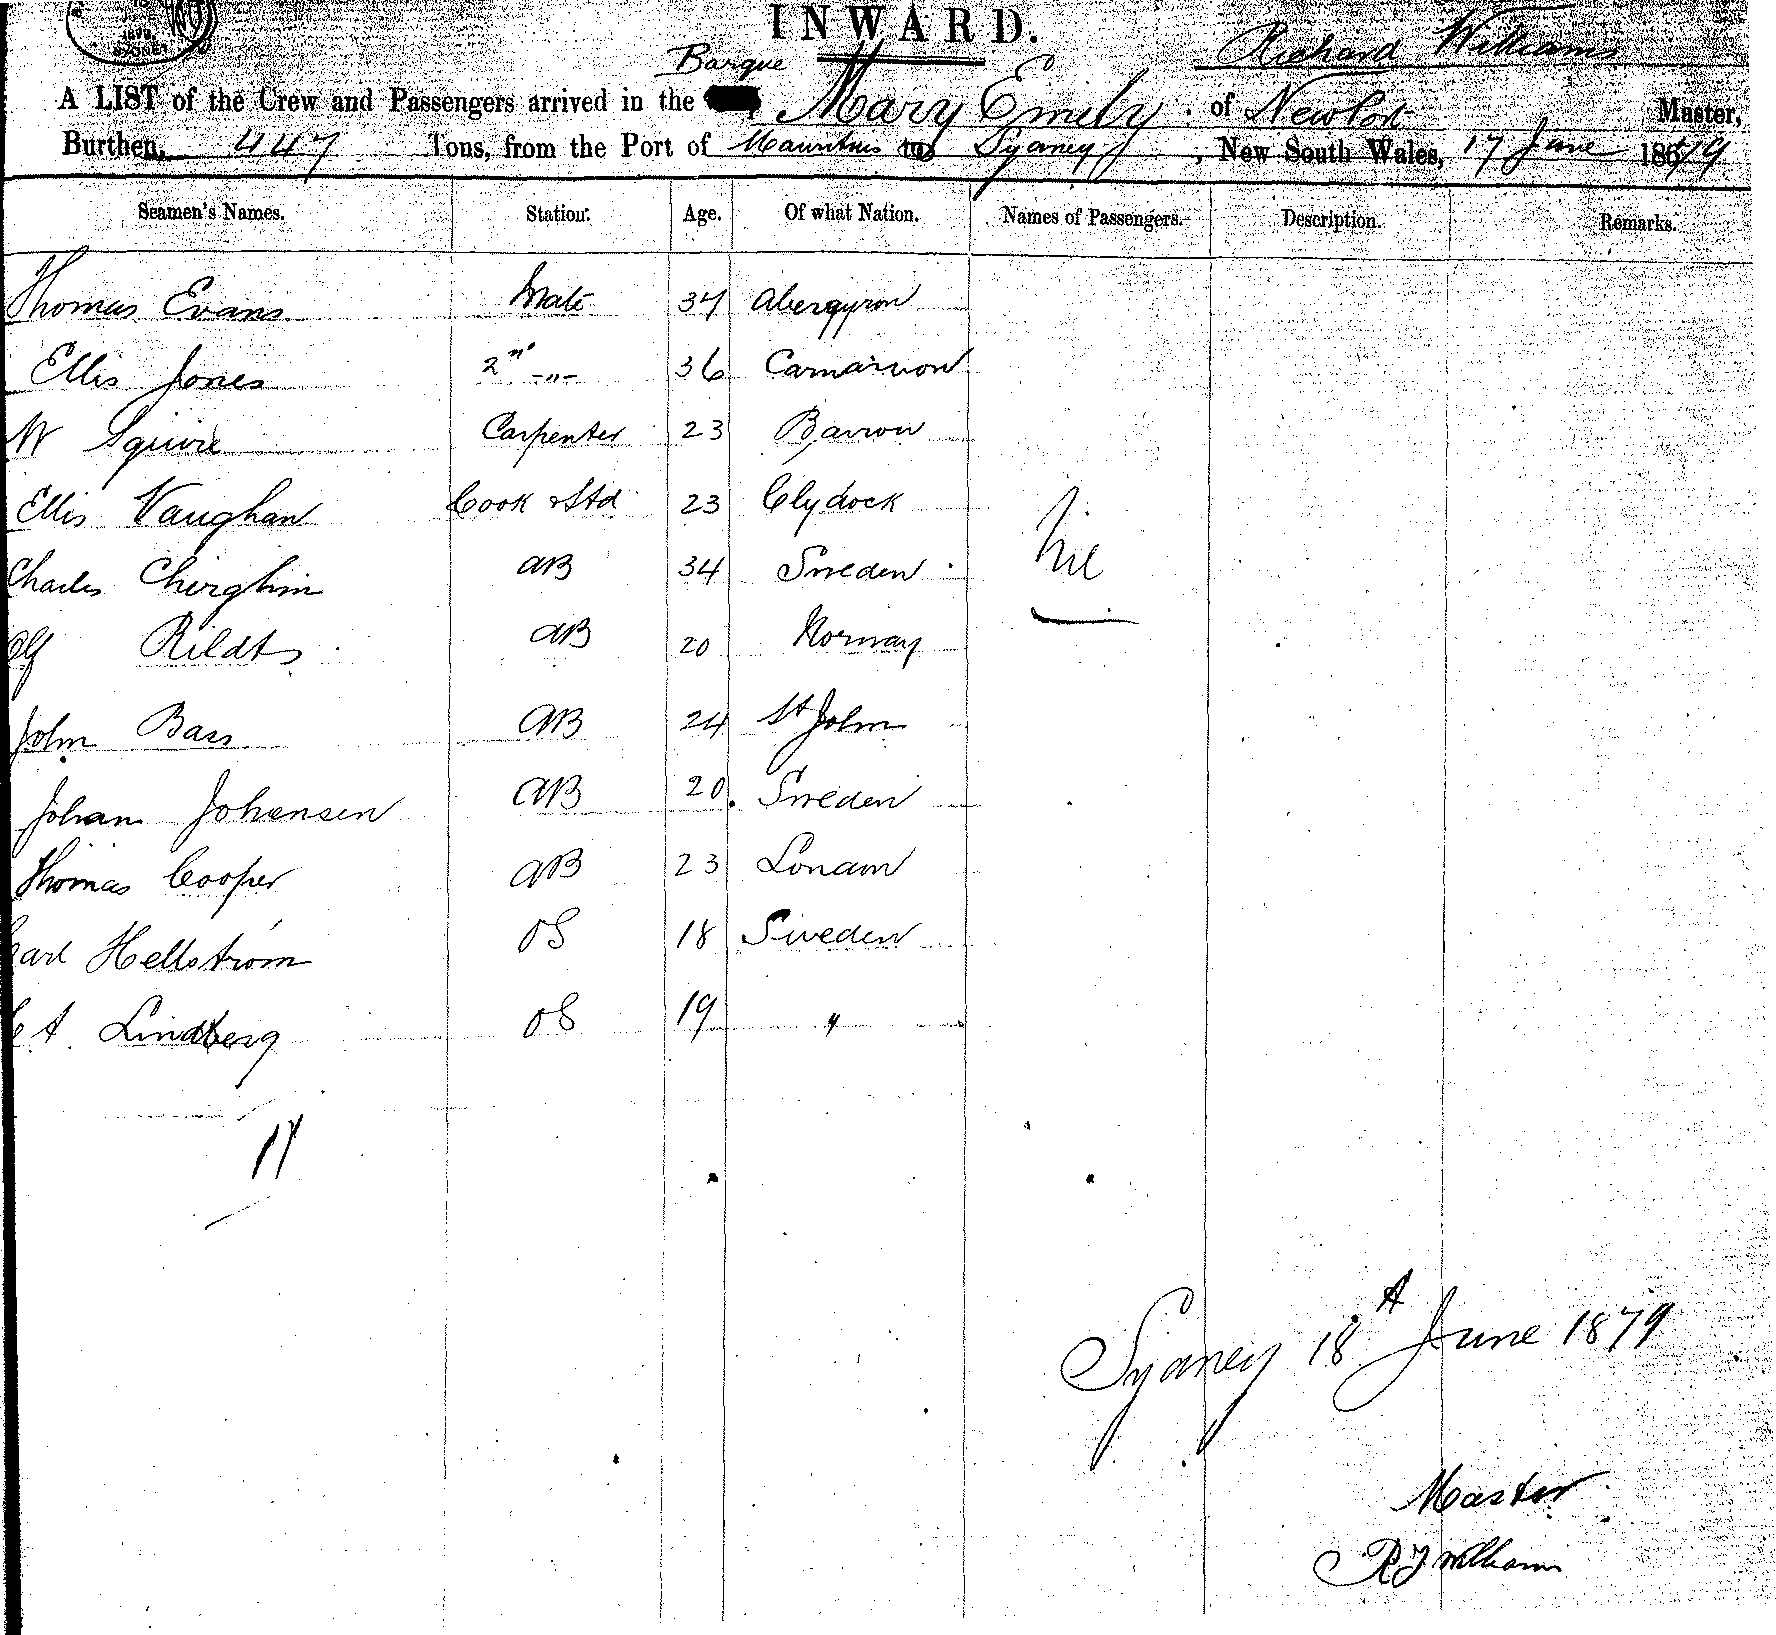 INWARD.
Barque Richard Williams
A LIST of the Crew and Passengers arrived in the Mary Emily of NewPort Master,
Burthen, 447 Tons, from the Port of Mauritius to Sydney, New South Wales, 17 June 1879
Seamen's Names. Station. Age. Of what Nation. Names of Passengers. Description. Remarks.
Thomas Evans Mate 34
Ellis Jones 2nd -"- 36 Carnarvon
W Squire Carpenter 23 Barrow
Ellis Vaughan Cook & Std 23 Clydock
Charles AB 34 Sweden Nil
Rildts AB 20 Norway
John Bass AB 24 St John
Johan Johansen AB 20 Sweden
Thomas Cooper AB 23 London
Carl Hellstrom OS 18 Sweden
C A Lindberg OS 19 "
11
Sydney 18th June 1879
Master
R J Williams